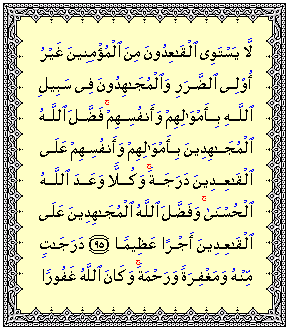 لَّا يَسْتَوِى ٱلْقَـٰعِدُونَ مِنَ ٱلْمُؤْمِنِينَ غَيْرُ
أُو۟لِى ٱلضَّرَرِ وَٱلْمُجَـٰهِدُونَ فِى سَبِيلِ
ٱللَّهِ بِأَمْوَٰلِهِمْ وَأَنفُسِهِمْ ۚ فَضَّلَ ٱللَّهُ
ٱلْمُجَـٰهِدِينَ بِأَمْوَٰلِهِمْ وَأَنفُسِهِمْ عَلَى
ٱلْقَـٰعِدِينَ دَرَجَةً ۚ وَكُلًّا وَعَدَ ٱللَّهُ
ٱلْحُسْنَىٰ ۚ وَفَضَّلَ ٱللَّهُ ٱلْمُجَـٰهِدِينَ عَلَى
ٱلْقَـٰعِدِينَ أَجْرًا عَظِيمًا ﴿٩٥﴾ دَرَجَـٰتٍ
مِّنْهُ وَمَغْفِرَةً وَرَحْمَةً ۚ وَكَانَ ٱللَّهُ غَفُورًا